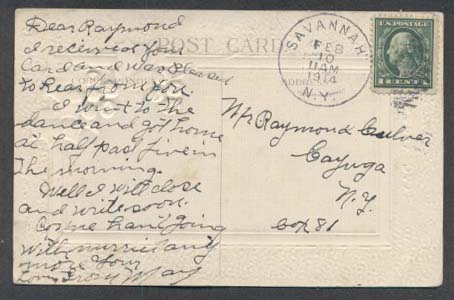 Dear Raymond
I received your
Card and was pleased
to hear from you.
I went to the
dance and got home
at half past five in
the morning.
Well I will close
and write soon.
going
with any
more your
Love from May
POST CARD
CORRESPONDENCE
ADDRESS
SAVANNAH
FEB
10
11 AM
1914
N.Y.
U.S. POSTAGE
1 CENT 1
Mr Raymond Culver
Cayuga
N.Y.
81